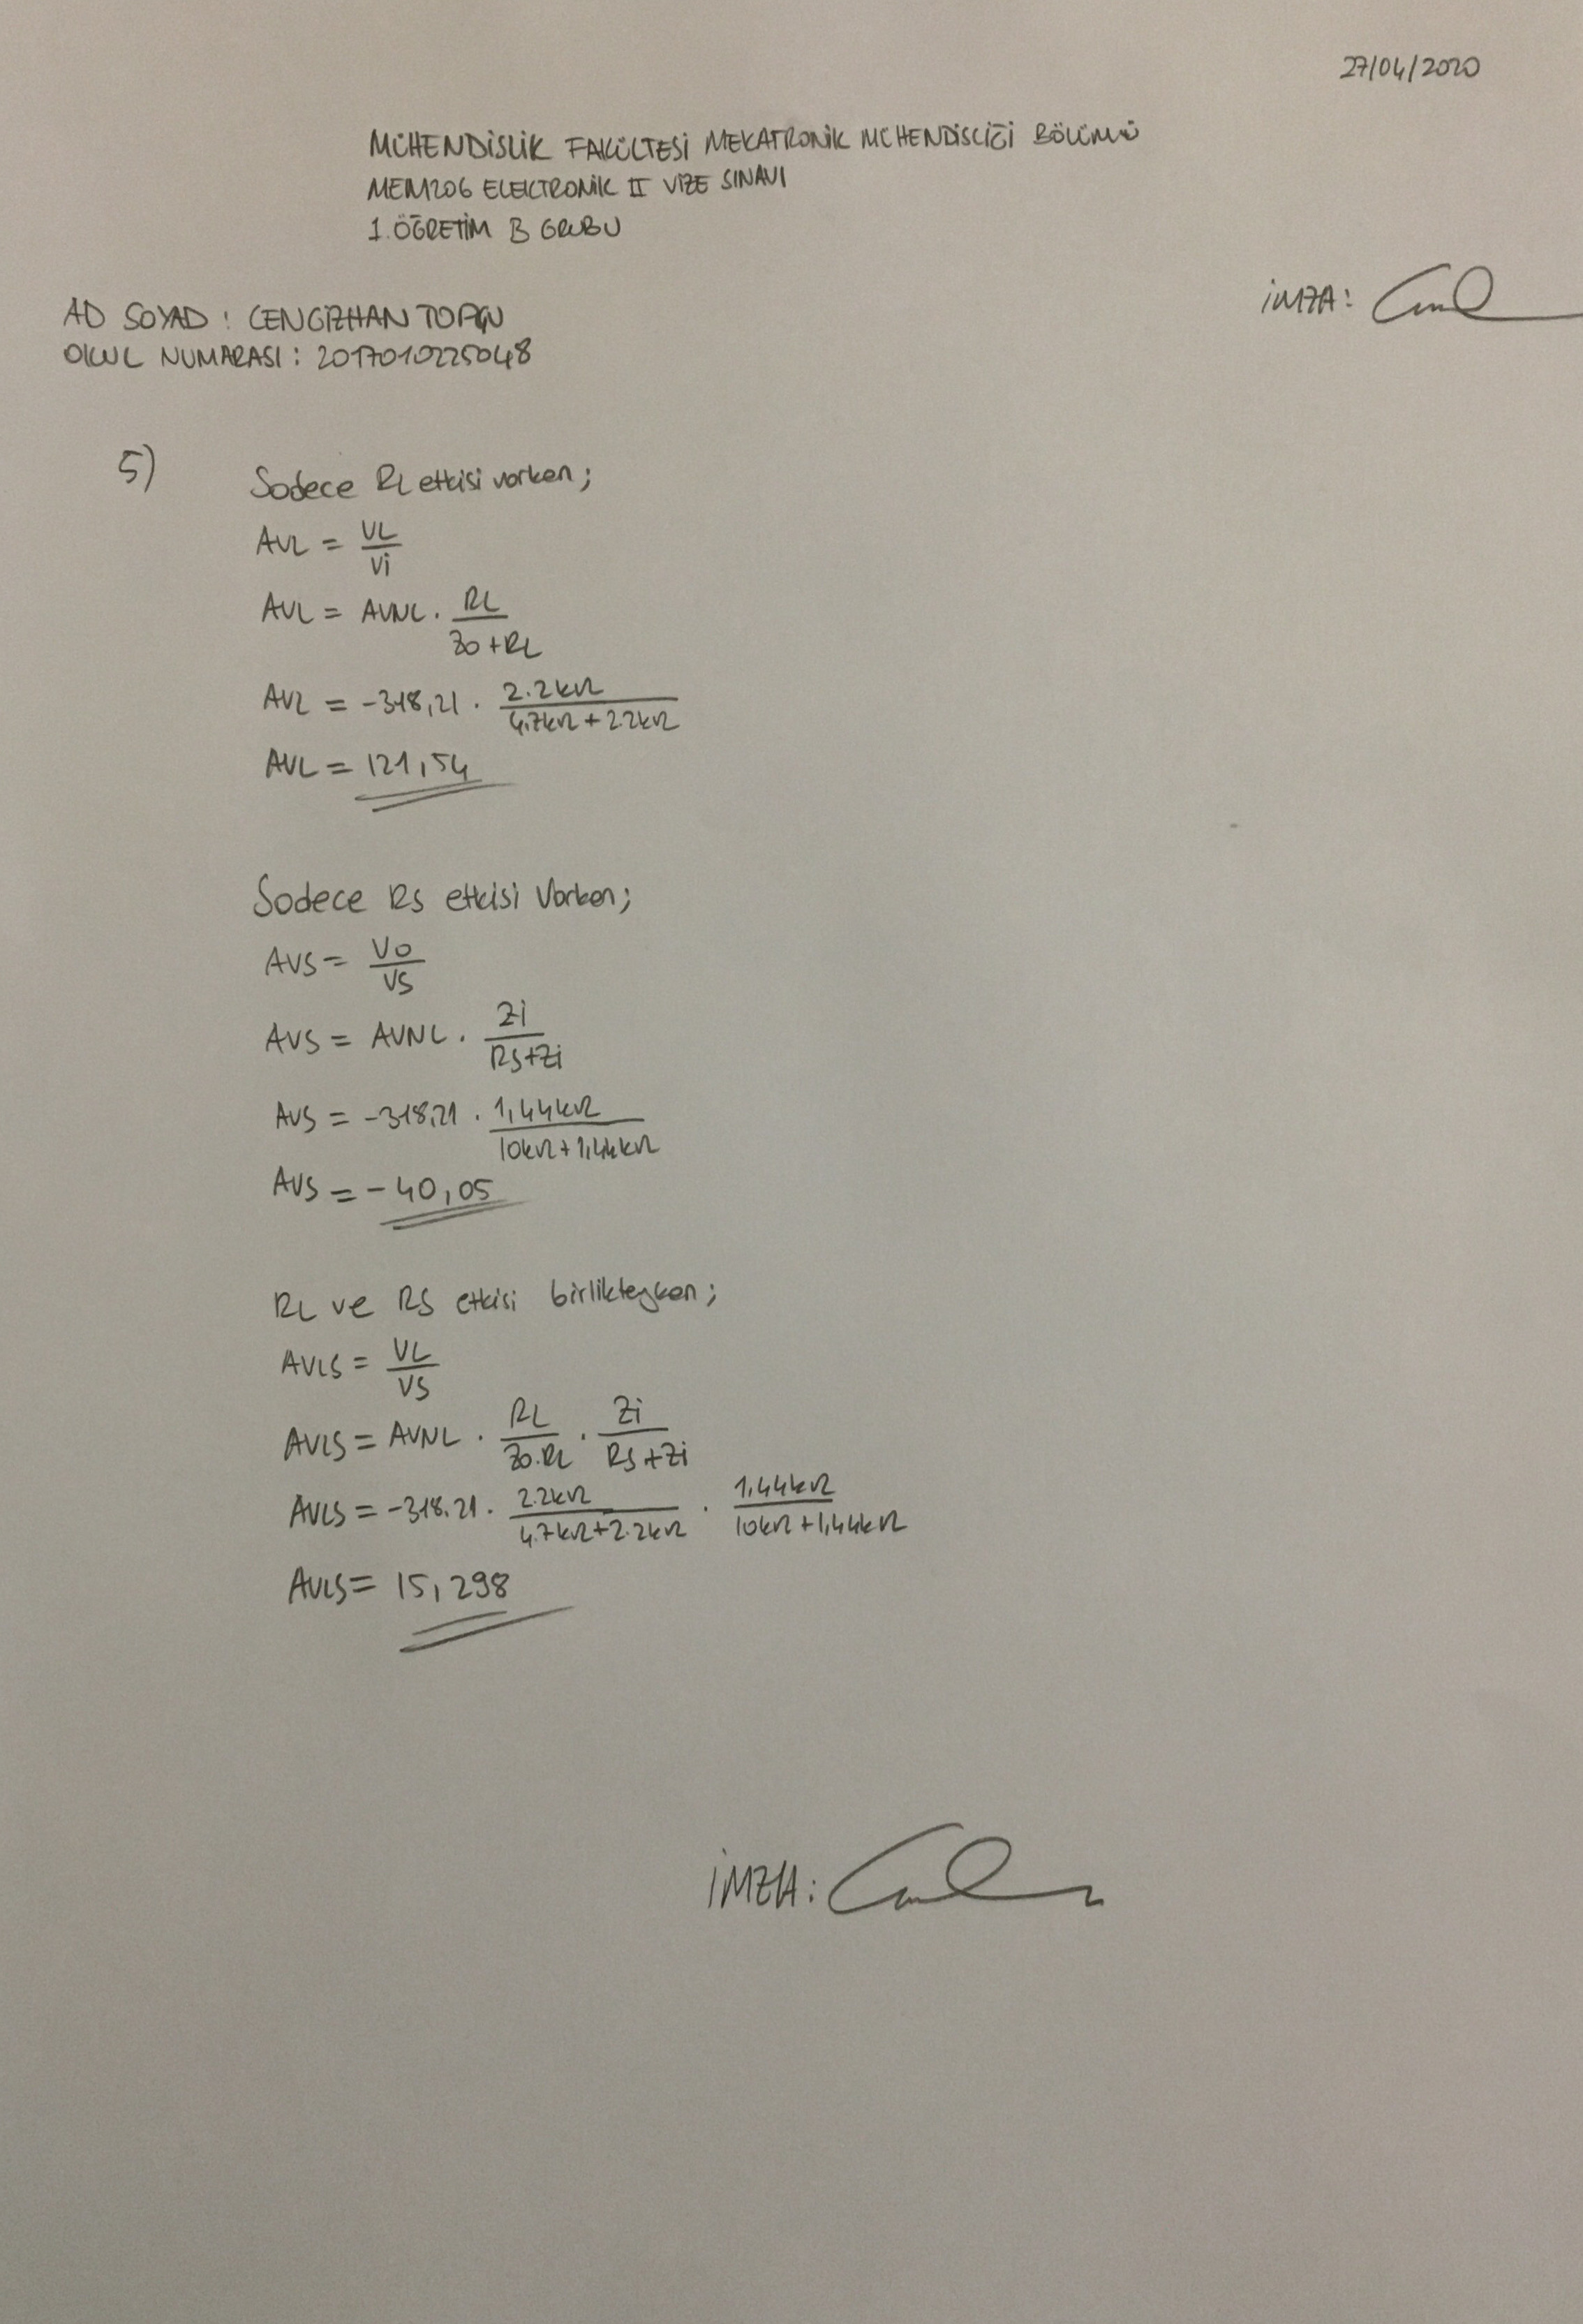 27/04/2020
MÜHENDİSLİK FAKÜLTESİ MEKATRONİK MÜHENDİSLİĞİ BÖLÜMÜ
MEM206 ELEKTRONİK II VİZE SINAVI
1.ÖĞRETİM B GRUBU
İMZA:
AD SOYAD : CENGİZHAN TOPÇU
OKUL NUMARASI : 2017010225048
5)
Sadece RL etkisi varken;
AVL = VL / Vi
AVL = AVNL . RL / Zo+RL
AVL = -318,21 . 2.2kΩ / 4.7kΩ + 2.2kΩ
AVL = 121,54
Sadece RS etkisi Varken;
AVS = Vo / VS
AVS = AVNL . Zi / RS+Zi
AVS = -318,21 . 1,44kΩ / 10kΩ + 1,44kΩ
AVS = -40,05
RL ve RS etkisi birlikteyken;
AVLS = VL / VS
AVLS = AVNL . RL / Zo.RL . Zi / RS+Zi
AVLS = -318.21 . 2.2kΩ / 4.7kΩ+2.2kΩ . 1.44kΩ / 10kΩ+1,44kΩ
AVLS = 15,298
İMZA: